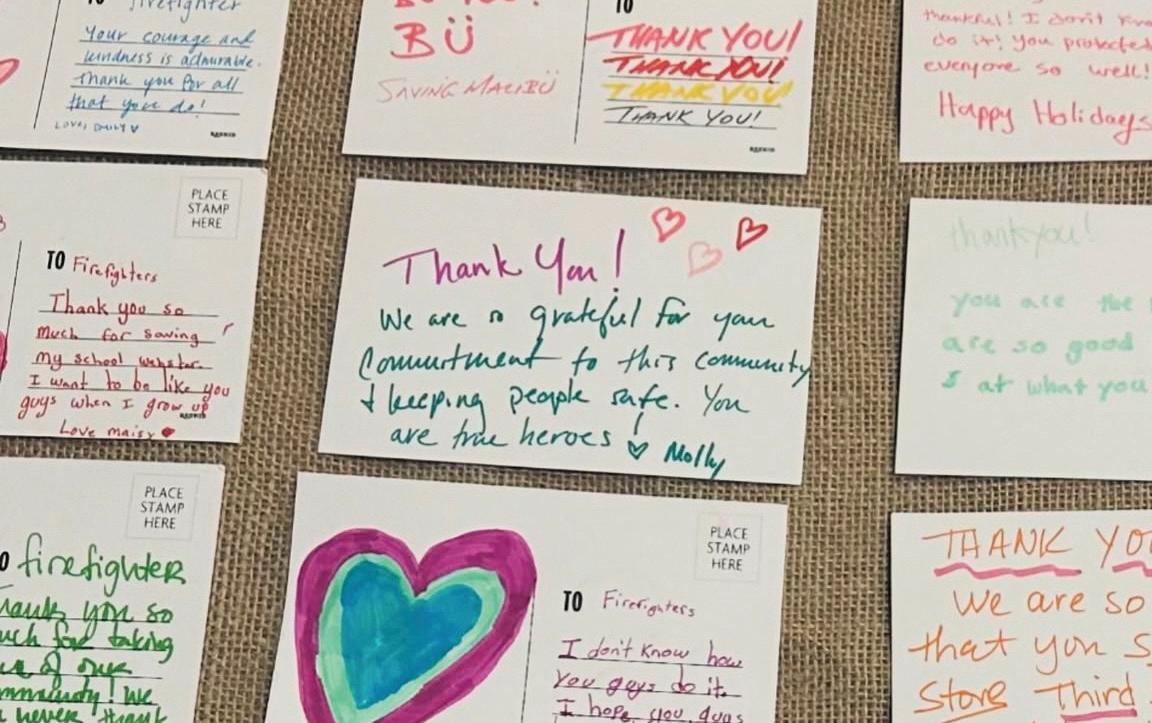 TO firefighter
Your courage and
kindness is admirable.
Thank you for all
that you do!
LOVE, EMILY
BÜ
SAVING MALIBÜ
TO
THANK YOU!
THANK YOU!
THANK YOU!
THANK YOU!
thankful! I don't
do it! you protected
everyone so well!
Happy Holidays
PLACE
STAMP
HERE
TO Firefighters
Thank you so
much for saving
my school webster.
I want to be like you
guys when I grow up
Love maisy
Thank You!
We are so grateful for your
Commitment to this community
& keeping people safe. You
are true heroes! Molly
thankyou!
you are the
are so good
at what you
PLACE
STAMP
HERE
firefighter
Thank you so
much for taking
of our
community! We
never thank
PLACE
STAMP
HERE
TO Firefighters
I don't know how
You guys do it.
I hope you guys
THANK YO
We are so
that you S
Store Third